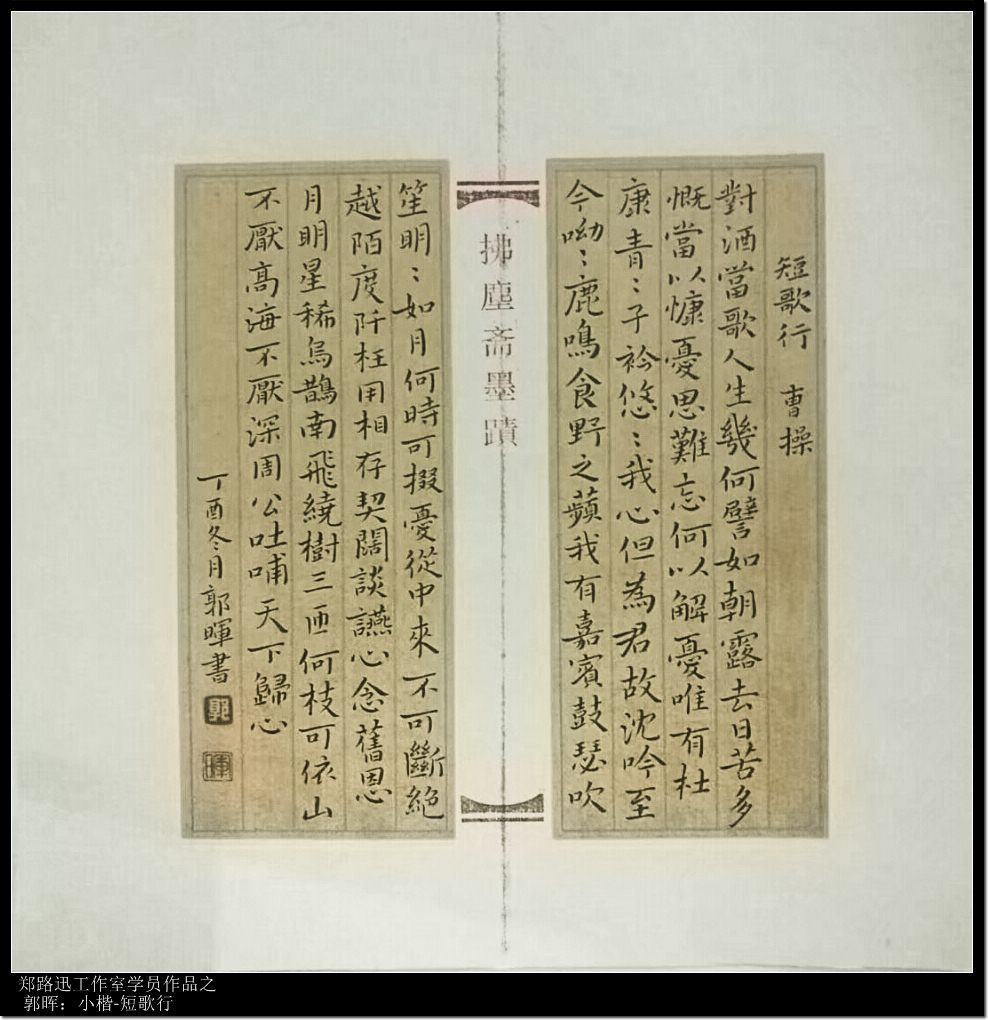 短歌行 曹操
對酒當歌人生幾何譬如朝露去日苦多
慨當以慷憂思難忘何以解憂唯有杜
康青〻子衿悠〻我心但為君故沈吟至
今呦〻鹿鳴食野之蘋我有嘉賓鼓瑟吹
拂塵斋墨蹟
笙明〻如月何時可掇憂從中來不可斷絕
越陌度阡枉用相存契闊談讌心念舊恩
月明星稀烏鵲南飛繞樹三匝何枝可依山
不厭高海不厭深周公吐哺天下歸心
丁酉冬月郭暉書
郭
暉
郑路迅工作室学员作品之
郭晖：小楷-短歌行